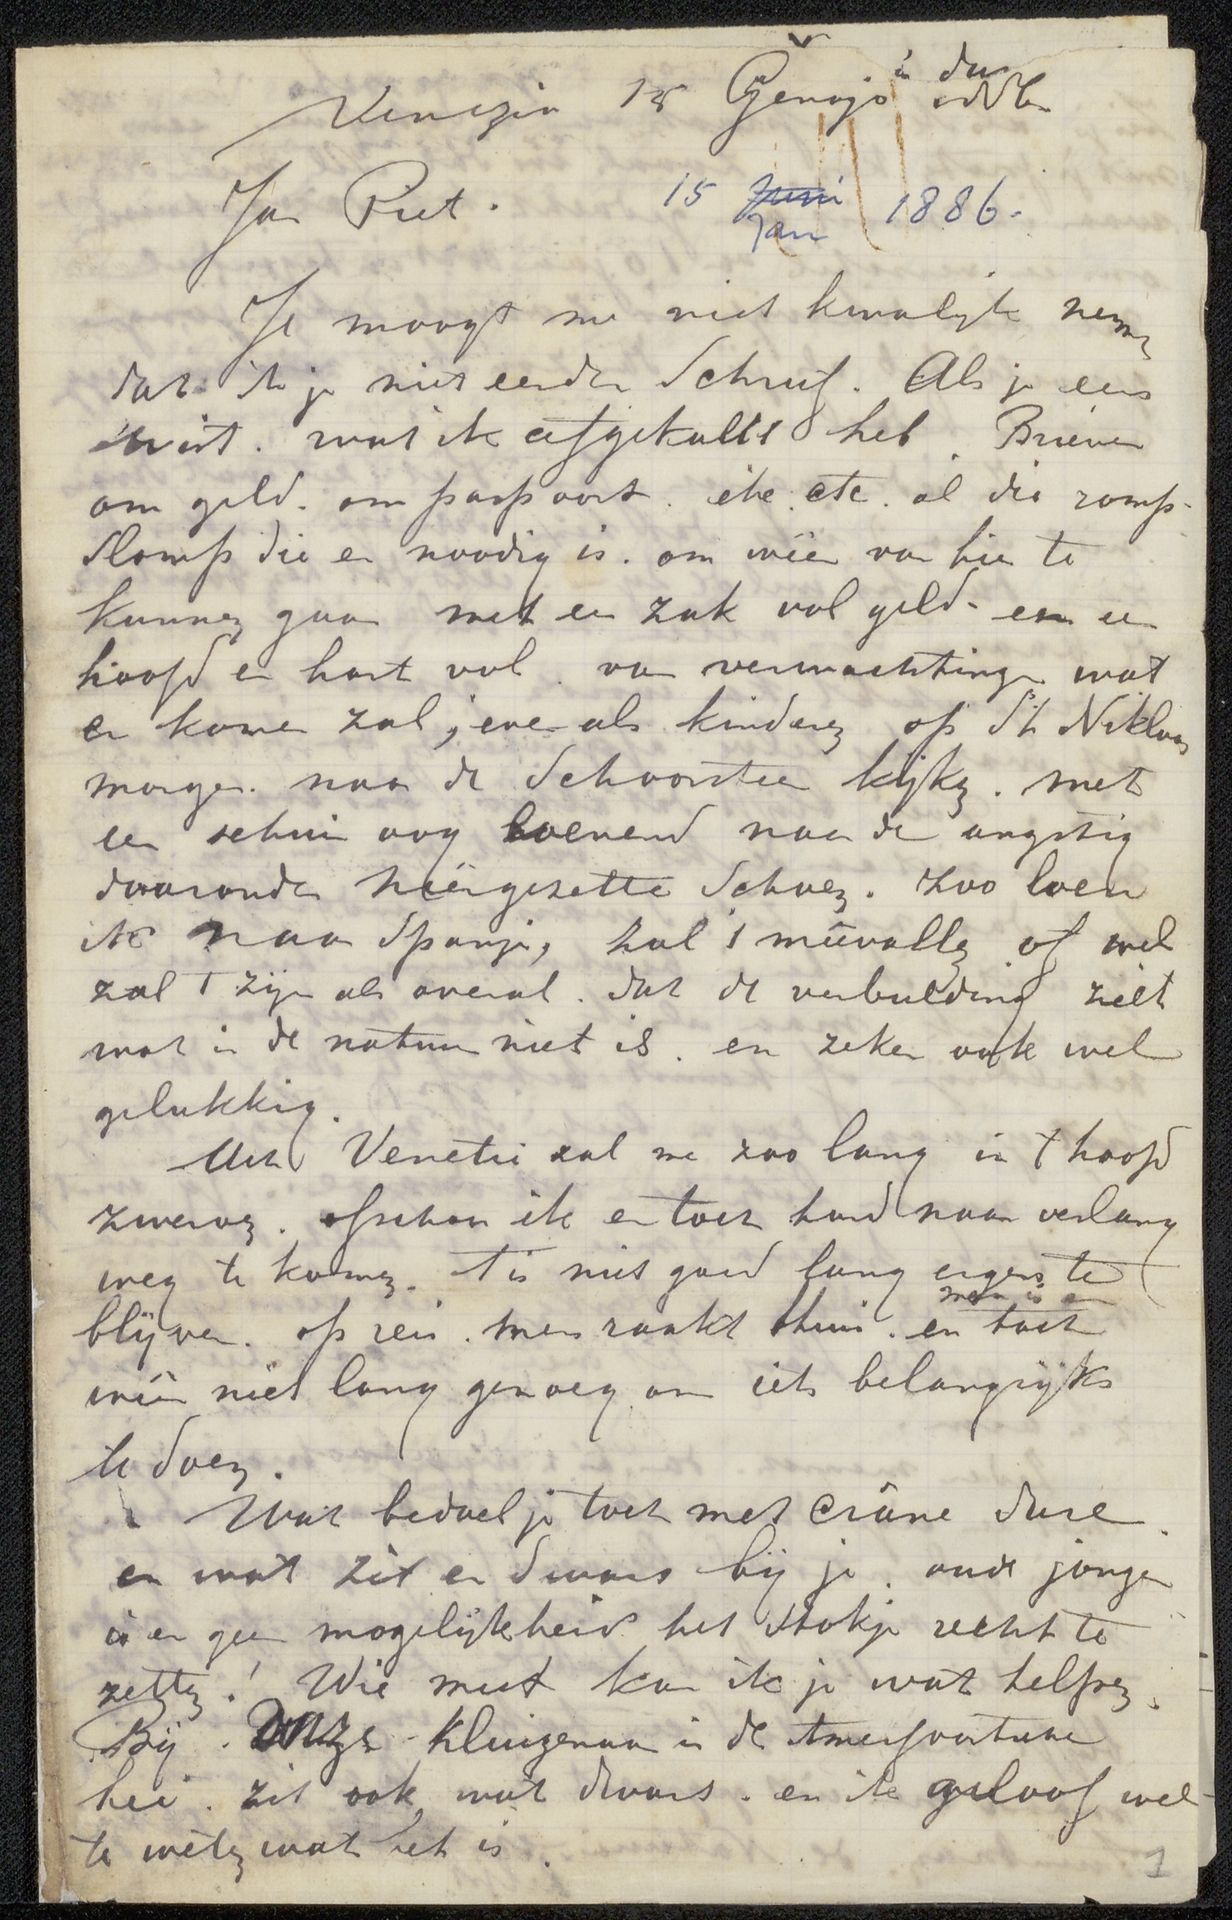 Venezia 15 Genajo
Jan Piet. 15 Juni Jan 1886.
Je moogt me niet kwalijk nemen
dat ik je niet eerder schreef. Als je eens
wist. wat ik afgekalkt heb. Brieven
om geld. om paspoort. etc. etc. al die romp-
slomp die er noodig is. om weer van hier te
kunnen gaan met een zak vol geld. en een
hoofd en hart vol van verwachtingen wat
er komen zal; even als kinderen op St Niklaas
morgen. naar de schoorsteen kijken. met
een schuin oog loenend naar de angstig
daaronder neergezette schoen. zoo loen
ik naar Spanje, zal 't meevallen of wel
zal 't zijn als overal. dat de verbeelding ziet
wat in de natuur niet is. en zeker ook wel
gelukkig.
Maar Venetie zal me zoo lang in 't hoofd
zwerven. ofschoon ik er toch hard naar verlang
weg te komen. 't is niet goed lang ergens te
blijven. op reis. men raakt thuis. en men is er toch
weer niet lang genoeg om iets belangrijks
te doen.
Wat bedoel je toch met crâne dure
en wat zit er dwars bij je. oude jongen
is er geen mogelijkheid het stokje recht te
zetten! Wie weet kan ik je wat helpen.
Bij onze kluizenaar in de Amersfoortsche
hei. zit ook wat dwars. en ik geloof wel
te weten wat het is.
1